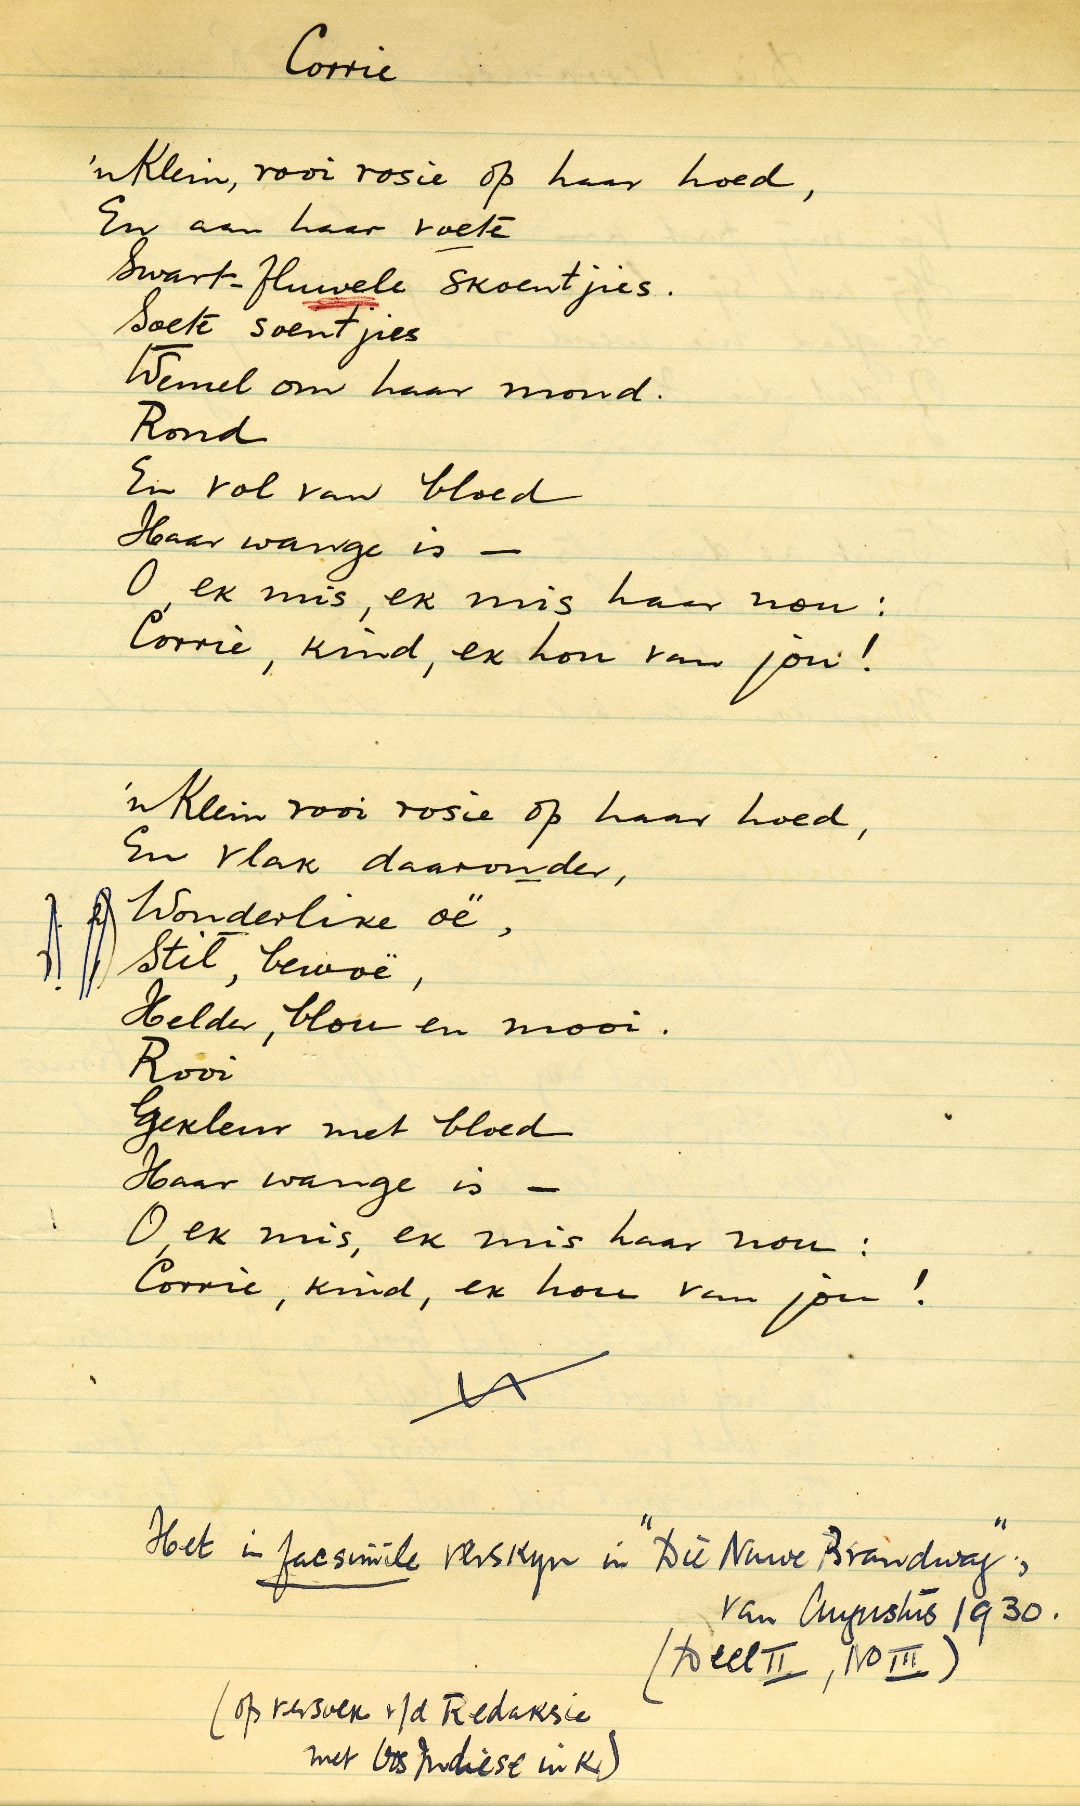 Corrie
'n Klein, rooi rosie op haar hoed,
En aan haar voete
Swart-fluwele skoentjies.
Soete soentjies
Wemel om haar mond.
Rond
En vol van bloed
Haar wange is —
O, ek mis, ek mis haar nou:
Corrie, kind, ek hou van jou!
'n Klein rooi rosie op haar hoed,
En vlak daaronder,
Wonderlike oë,
Stil, bewoë,
Helder, blou en mooi.
Rooi
Gekleur met bloed
Haar wange is —
O, ek mis, ek mis haar nou:
Corrie, kind, ek hou van jou!
Het in facsimile verskyn in "Die Nuwe Brandwag",
van Augustus 1930.
(Deel II, No III)
(op versoek v/d Redaksie
met Oos Indiese ink)